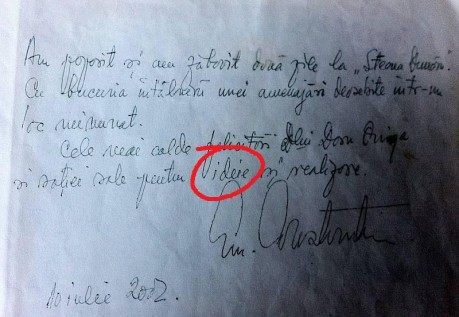 Am poposit și am zăbovit două zile la „Steaua Lumii".
Cu bucuria întâlnirii unei amenajări deosebite într-un
loc minunat.
Cele mai calde felicitări Dlui Doru
și soției sale pentru idéie și realizare.
Em. Constantin
10 iulie 2002.